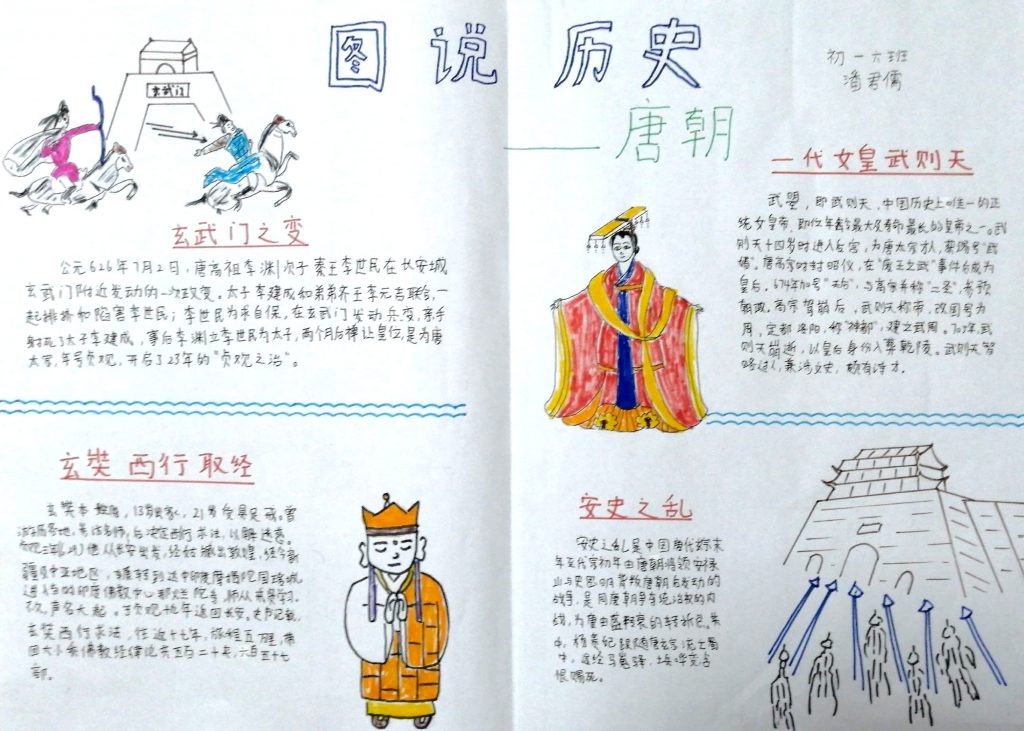 图说历史
——唐朝
初一六班
潘君儒
玄武门
玄武门之变
公元626年7月2日，唐高祖李渊次子秦王李世民在长安城
玄武门附近发动的一次政变。太子李建成和弟弟齐王李元吉联合，一
起排挤和陷害李世民；李世民为求自保，在玄武门发动兵变，亲手
射死了太子李建成，事后李渊立李世民为太子，两个月后禅让皇位，是为唐
太宗，年号贞观，开启了23年的“贞观之治”。
一代女皇武则天
武曌，即武则天，中国历史上唯一的正
统女皇帝，即位年龄最大及寿命最长的皇帝之一。武
则天十四岁时进入后宫，为唐太宗才人，获赐号“武
媚”。唐高宗时封昭仪，在“废王立武”事件后成为
皇后，674年加号“天后”，与高宗并称“二圣”，参预
朝政。高宗驾崩后，武则天称帝，改国号为
周，定都洛阳，称“神都”，建立武周。705年武
则天崩逝，以皇后身份入葬乾陵。武则天智
略过人，兼涉文史，颇有诗才。
玄奘西行取经
玄奘本姓陈，13岁出家，21岁受具足戒。曾
游历各地，寻访名师，后决定西行求法，以解迷惑。
贞观三年他从长安出发，经姑臧出敦煌，经今新
疆及中亚地区，辗转到达中印度摩揭陀国王舍城，
进入当时印度佛教中心那烂陀寺，师从戒贤学习。
不久，声名大起。于贞观十九年返回长安。史书记载，
玄奘西行求法，往返十七年，旅程五万里，带
回大小乘佛教经律论共五百二十夹，六百五十七
部。
安史之乱
安史之乱是中国唐代玄宗末
年至代宗初年由唐朝将领安禄
山与史思明背叛唐朝后发动的
战争，是同唐朝争夺统治权的内
战，为唐由盛转衰的转折点。其
中，杨贵妃跟随唐玄宗流亡蜀
中，途经马嵬驿
恨赐死。